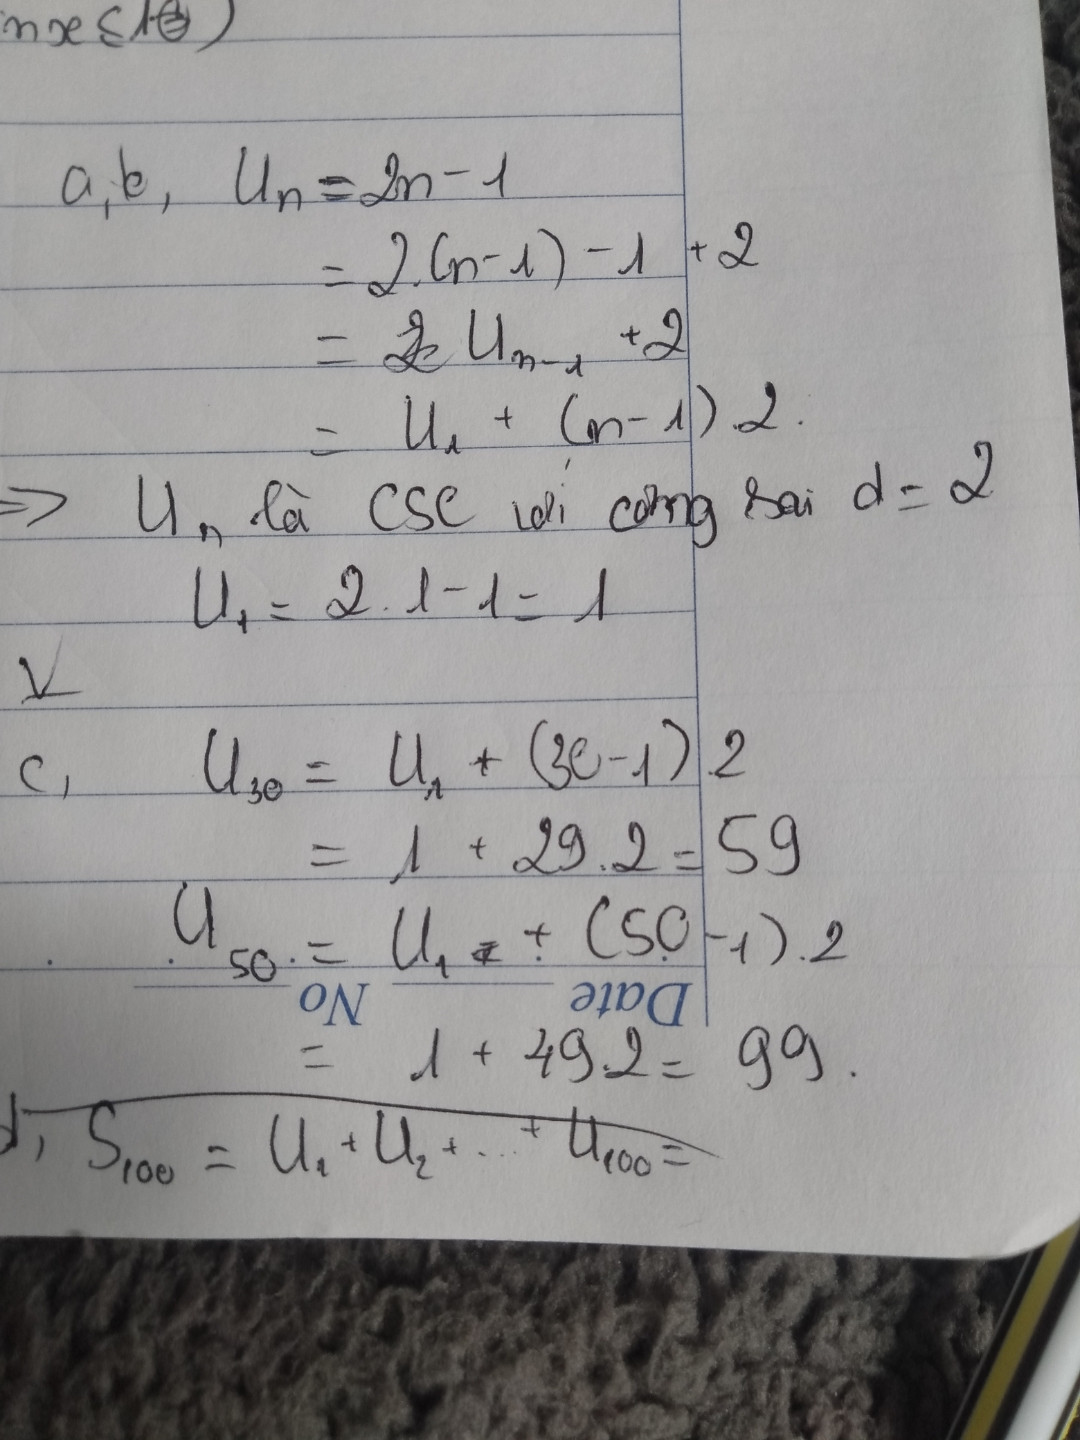 nx ≤ 10)
a, b, Un = 2n - 1
= 2.(n-1) - 1 + 2
= Un-1 + 2
= U1 + (n-1).2.
=> Un là CSC với công sai d = 2
U1 = 2.1 - 1 = 1
V
c, U30 = U1 + (30-1).2
= 1 + 29.2 = 59
U50 = U1 + (50-1).2
No Date
= 1 + 49.2 = 99.
d, S100 = U1 + U2 + ... + U100 =